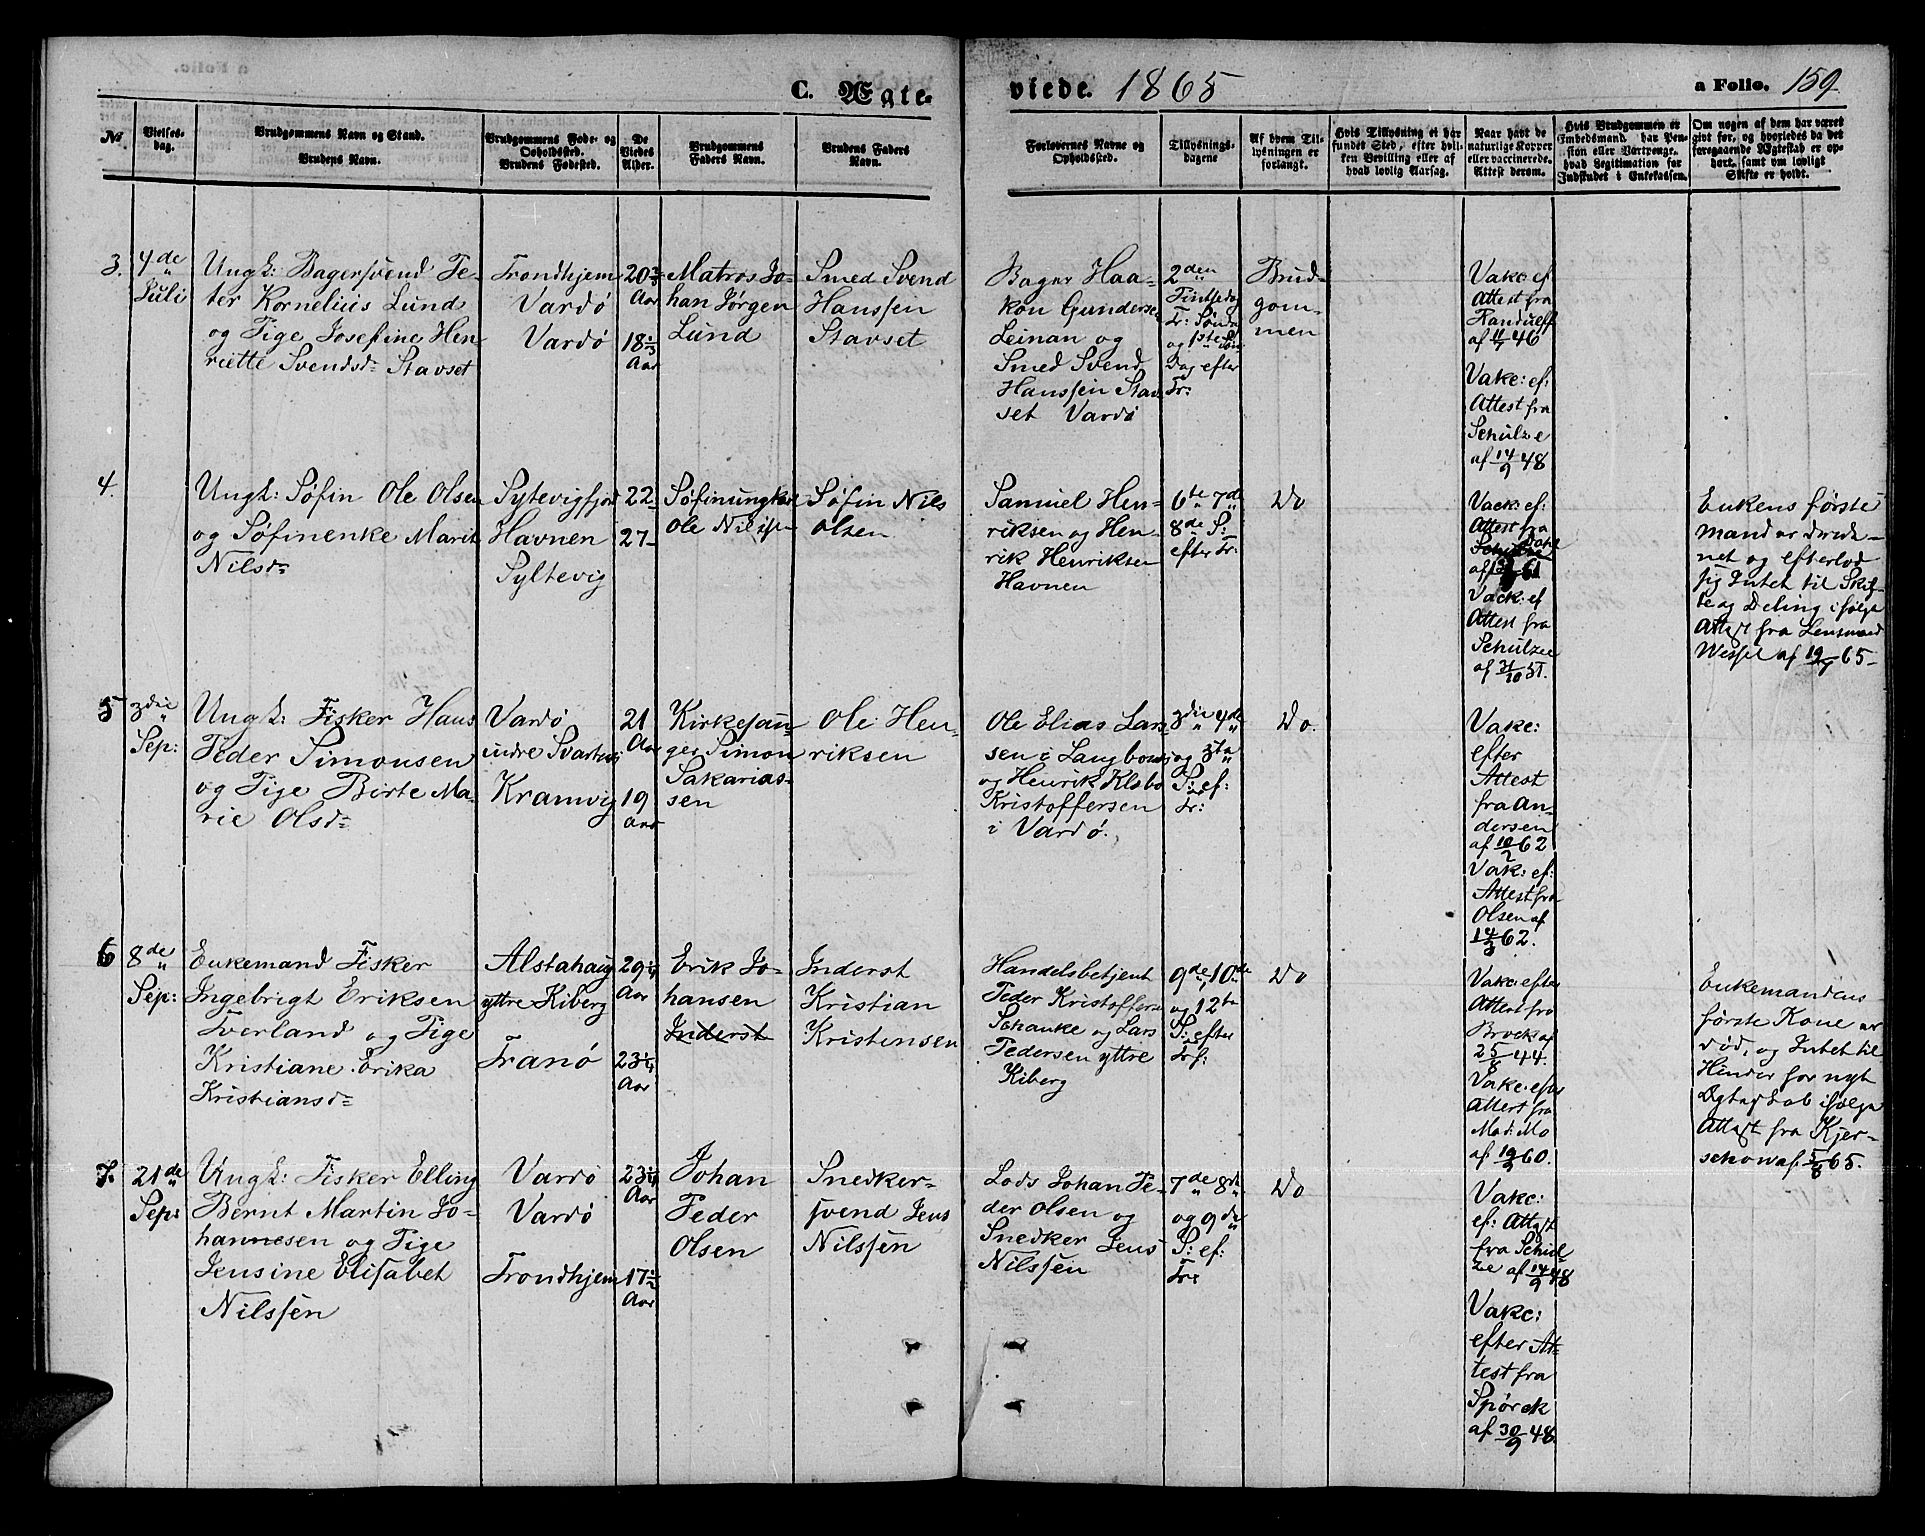 C. Ægte-
viede. 1865
a Folio. 159
№
Vielses-
dag.
Brudgommens Navn og Stand.
Brudens Navn.
Brudgommens Føde- og
Opholdssted.
Brudens Fødested.
De
Viedes
Alder.
Brudgommens
Faders Navn.
Brudens Faders
Navn.
Forlovernes Navne og
Opholdssted.
Tillysnings-
dagene
Af hvem Til-
lysningen er
forlangt.
Hvis Tillysning ei har
fundet Sted, efter hvil-
ken Bevilling eller af
hvad lovlig Aarsag.
Naar havt de
naturlige Kopper
eller vaccinerede.
Attest derom.
Hvis Brudgommen er
Embedsmand, har Pen-
sion eller Vartpenge,
hvad Legitimation for
Indskudet i Enkekassen.
Om nogen af dem har været
gift før, og hvorledes da det
foregaaende Ægteskab er op-
hørt, samt om lovligt
Skifte er holdt.
3.
4de
Juli
Ungk: Bagersvend Pe-
ter Kornelius Lund
og Pige Josefine Hen
riette Svendsd= Stavset
Trondhjem
Vardø
Vardø
20 2/3
Aar
18 1/3
Aar
Matros Jo-
han Jørgen
Lund
Smed Svend
Hanssen
Stavset
Bager Haa-
kon Gunderse
Leinan og
Smed Svend
Hanssen Stav
set Vardø
2den
Pintsedag
Tr: Sønd
og 1ste Søn
Dag efter
Tr:
Brud-
gom-
men
Vakc: ef
Attest fra
Randulff
af 46
Vakc: ef:
Attest fra
Schulze
af 14/9 48
4.
Ungk: Søfin Ole Olsen
og Søfinenke Marit
Nilsd=
Syltevigfjord
Havnen
Syltevig
22-
27-
Søfinungkarl
Ole Nilssen
Søfin Nils
Olsen
Samuel Hen-
riksen og Hen-
rik Henriksen
Havnen
6te 7de
8de S:
efter Tr:
Do
Vack: ef:
Attest fra
Dahl
af 61
Vack: ef
Attest fra
Schulzee
af 31/10 51.
Enkens første
Mand er druk-
net og efterlod
sig Intet til Skif-
te og Deling ifølge
Attest fra Lensmand
Wessel af 19/7 65-
5
3die
Sep:
Ungk: Fisker Hans
Peder Simonsen
og Pige Birte Ma-
rie Olsd=
Vardø
indre Svartnes
Kramvig
21
Aar
19
Aar
Kirkesan-
ger Simon
Sakarias-
sen
Ole Hen-
riksen
Ole Elias Lars
sen i Langbones
og Henrik Klebo
Kristoffersen
i Vardø.
3die 4de
og 5te
S: ef:
Tr:
Do.
Vakc:
efter
Attest
fra An-
dersen
af 10/2 62
Vakc: ef:
Attest fra
Olsen af
14/3 62.
6
8de
Sep:
Enkemand Fisker
Ingebrigt Eriksen
Tverland og Pige
Kristiane Erika
Kristiansd=
Alstahaug
yttre Kiberg
Tranø
29 1/4
Aar
23 1/4
Aar
Erik Jo-
hansen
Inderst
Inderst
Kristian
Kristensen
Handelsbetjent
Peder Kristoffersen
Schanke og Lars
Pedersen yttre
Kiberg
9de, 10de
og 12te
S: efter
Trf:
Do
Vakc: efter
Attest fra
Brock af
25/8 44.
Vakc: efter
Attest fra
Mad: Mo
af 19/9 60.
Enkemandens
første Kone er
død, og Intet til
Hinder for nyt
Ægteskab ifølge
Attest fra Kjer-
schow af 5/8 65.
7.
21de
Sep:
Ungk: Fisker Elling
Bernt Martin Jo-
hannesen og Pige
Jensine Elisabet
Nilssen
Vardø
Vardø
Trondhjem
23 1/4
Aar
17 1/2
Aar
Johan
Peder
Olsen
Snedker-
svend Jens
Nilssen
Lods Johan Pe-
der Olsen og
Snedker Jens
Nilssen
7de 8de
og 9de
S: ef:
Tr:
Do
Vakc:
ef: Attest
fra Schul
ze af 14/9 48
Vakc:
efter At-
test fra
Spørck
af 30/9 48.